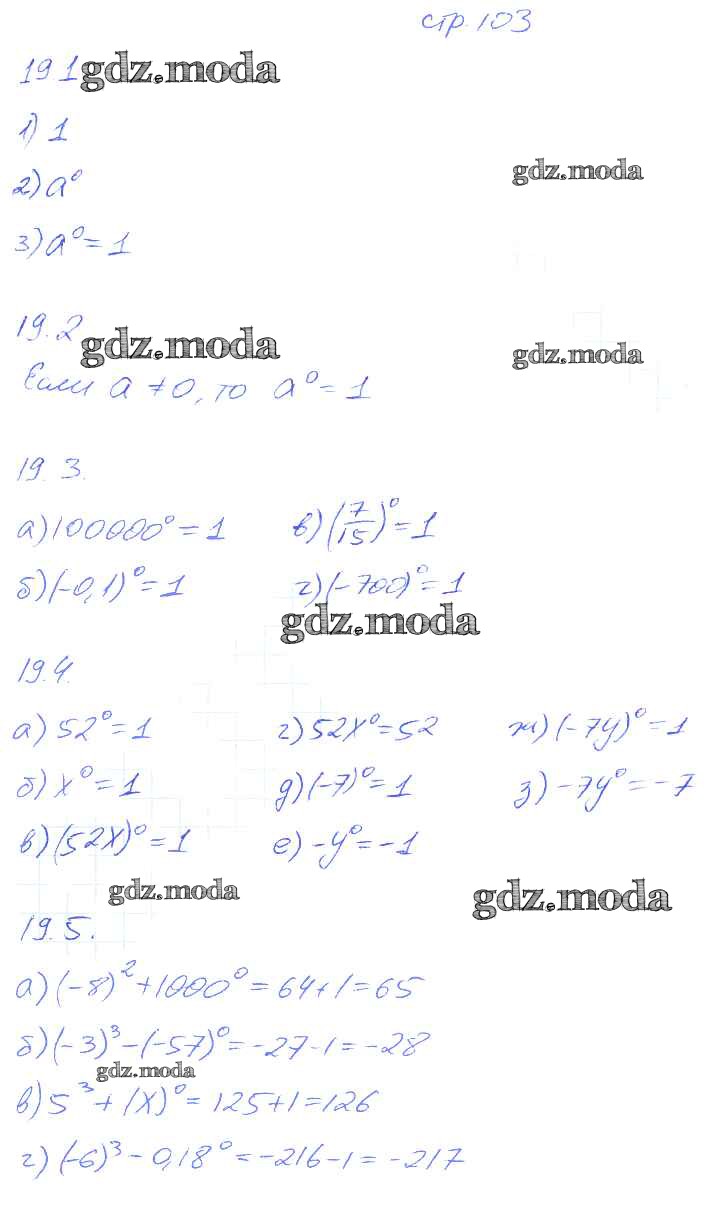 стр. 103
19.1 gdz.moda
1) 1
2) a⁰ gdz.moda
3) a⁰ = 1
19.2 gdz.moda gdz.moda
Если a ≠ 0, то a⁰ = 1
19.3.
а) 100000⁰ = 1 в) (7/15)⁰ = 1
б) (-0,1)⁰ = 1 г) (-700)⁰ = 1
gdz.moda
19.4.
а) 52⁰ = 1 г) 52x⁰ = 52 ж) (-7y)⁰ = 1
б) x⁰ = 1 д) (-7)⁰ = 1 з) -7y⁰ = -7
в) (52x)⁰ = 1 е) -y⁰ = -1
gdz.moda gdz.moda
19.5.
а) (-8)² + 1000⁰ = 64 + 1 = 65
б) (-3)³ - (-57)⁰ = -27 - 1 = -28
gdz.moda
в) 5³ + (x)⁰ = 125 + 1 = 126
г) (-6)³ - 0,18⁰ = -216 - 1 = -217